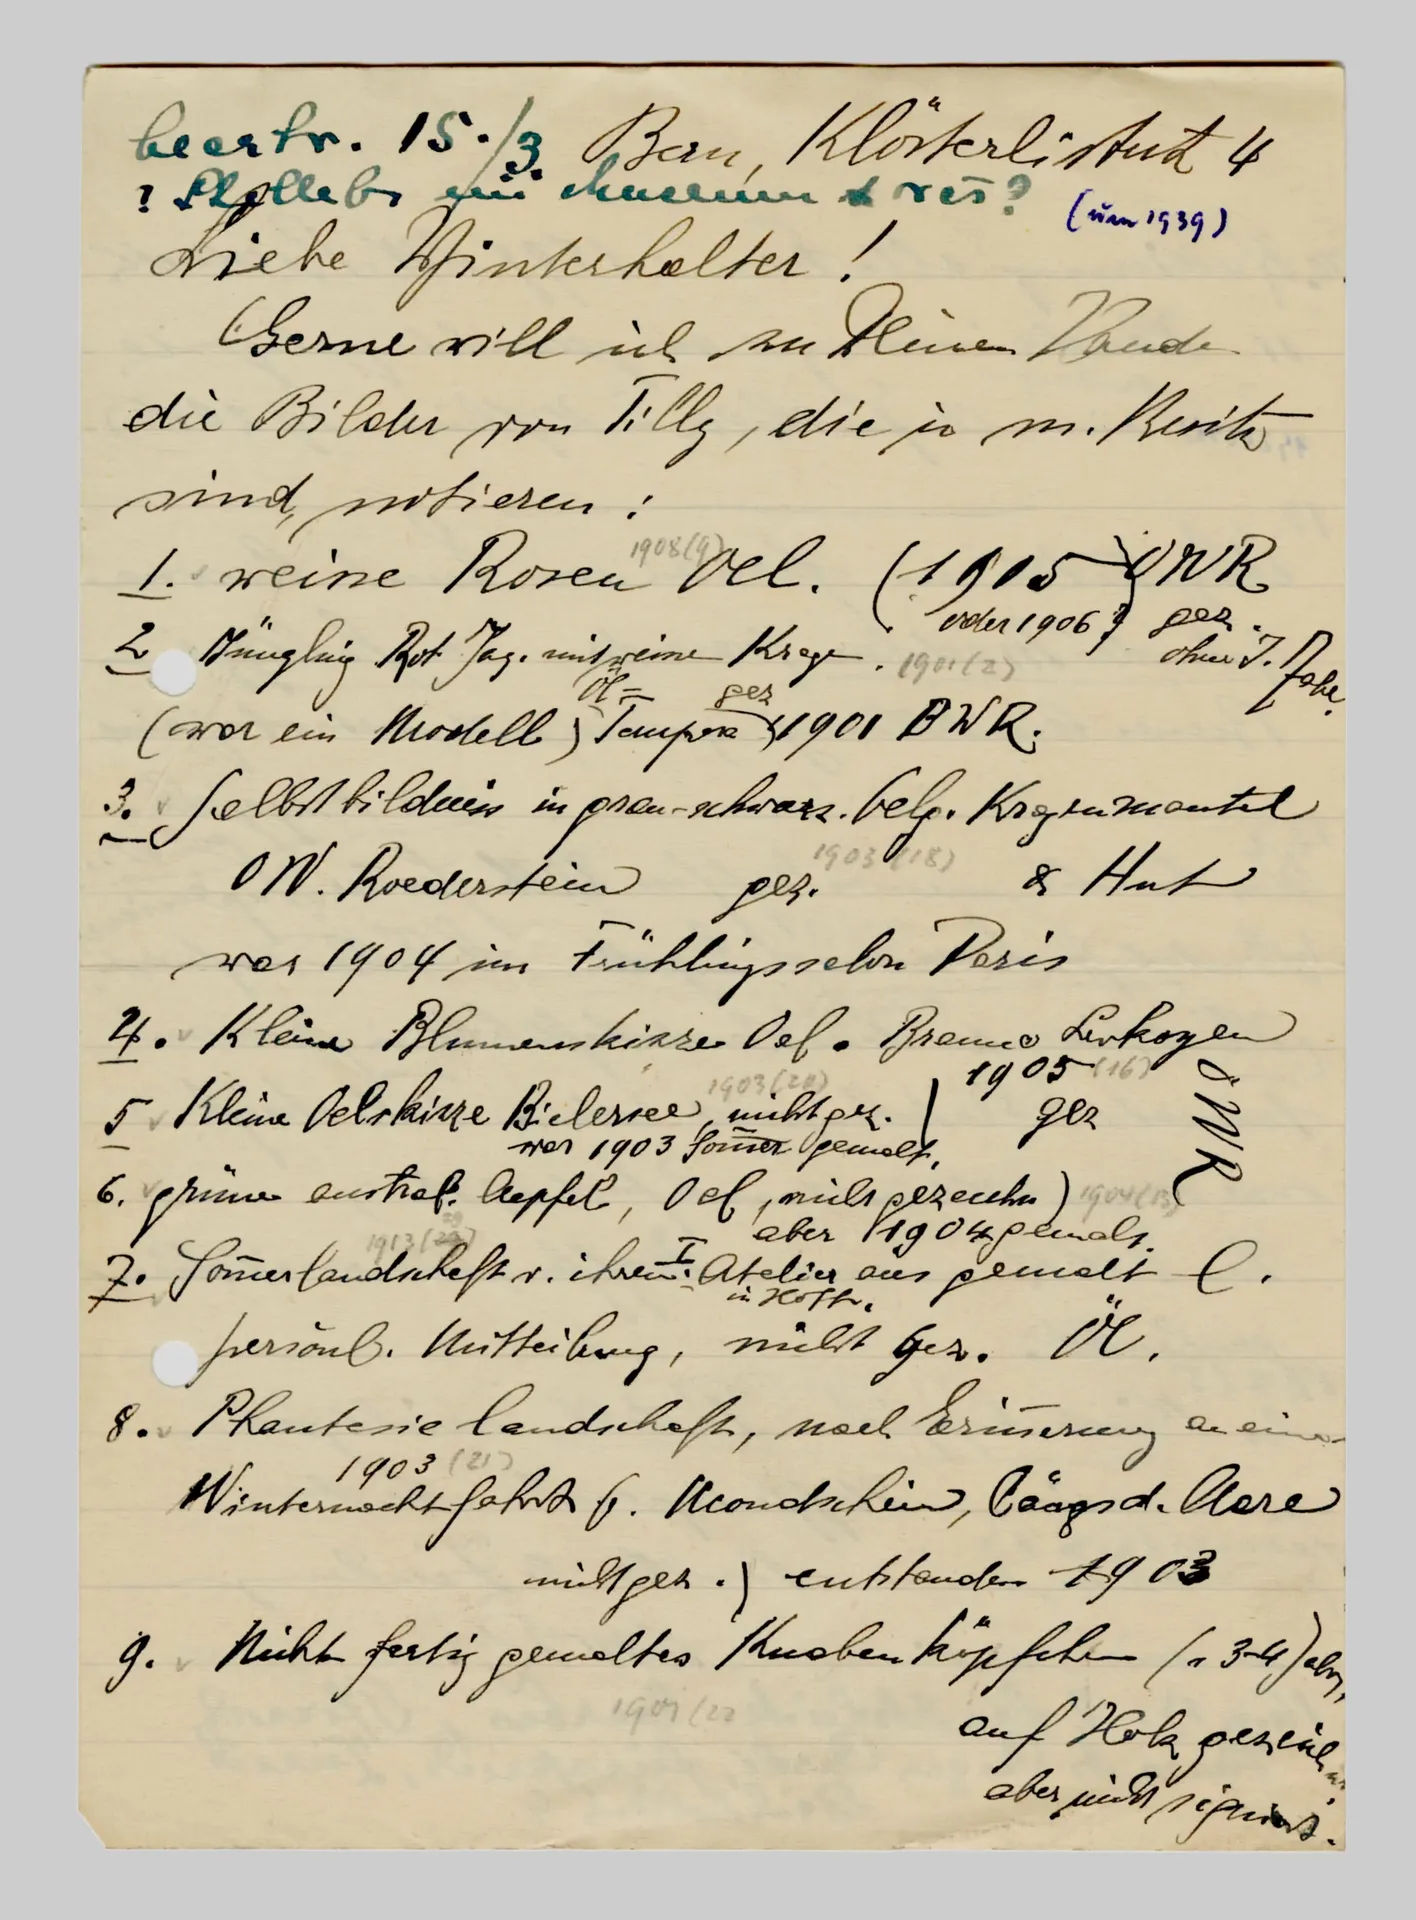 beantw. 15./3. Bern, Klösterlistutz 4
? mit Museum & res?
(um 1939)
Liebe Winterhalter!
Gerne will ich zu Deinen Handen
die Bilder von Tilly, die in m. Besitz
sind, notieren:
1908(9)
1. weisse Rosen Oel. (1905) OWR
oder 1906? gez.
2 Jüngling Rot Jag. mit weissem Kragen. 1901(2) ohne J.
Öl= gez
(war ein Modell) Tempera 1901 OWR.
3. Selbstbildnis in grau-schwarz. Kragenmantel
1903(18)
OW. Roederstein gez. & Hut
war 1904 im Frühlingssalon Paris
4. Kleine Blumenskizze Oel. Braune Levkoyen
1903(20) 1905 (16)
5 Kleine Oelskizze Bielersee, nicht gez. gez OWR
war 1903 Som̄er gemalt.
6. grüne austral. Aepfel, Oel, nicht gezeichn) 1904(13)
aber 1904 gemalt.
1913(
7. Som̄erlandschaft v. ihrem I. Atelier aus gemalt l.
in Hofh.
persönl. Mitteilung, nicht gez. Öl.
8. Phantasie landschaft, nach Erin̄erung an eine
1903 (21)
Winternachtfahrt b. Mondschein, längs d. Aare
nicht gez.) entstanden 1903
9. Nicht fertig gemaltes Knabenköpfchen (3-4)
1901(22
auf Holz gezeichn.
aber nicht signiert.